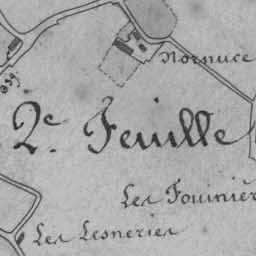 Nornuce
2e. Feuille
Les Fouiniè
Les Lesneries